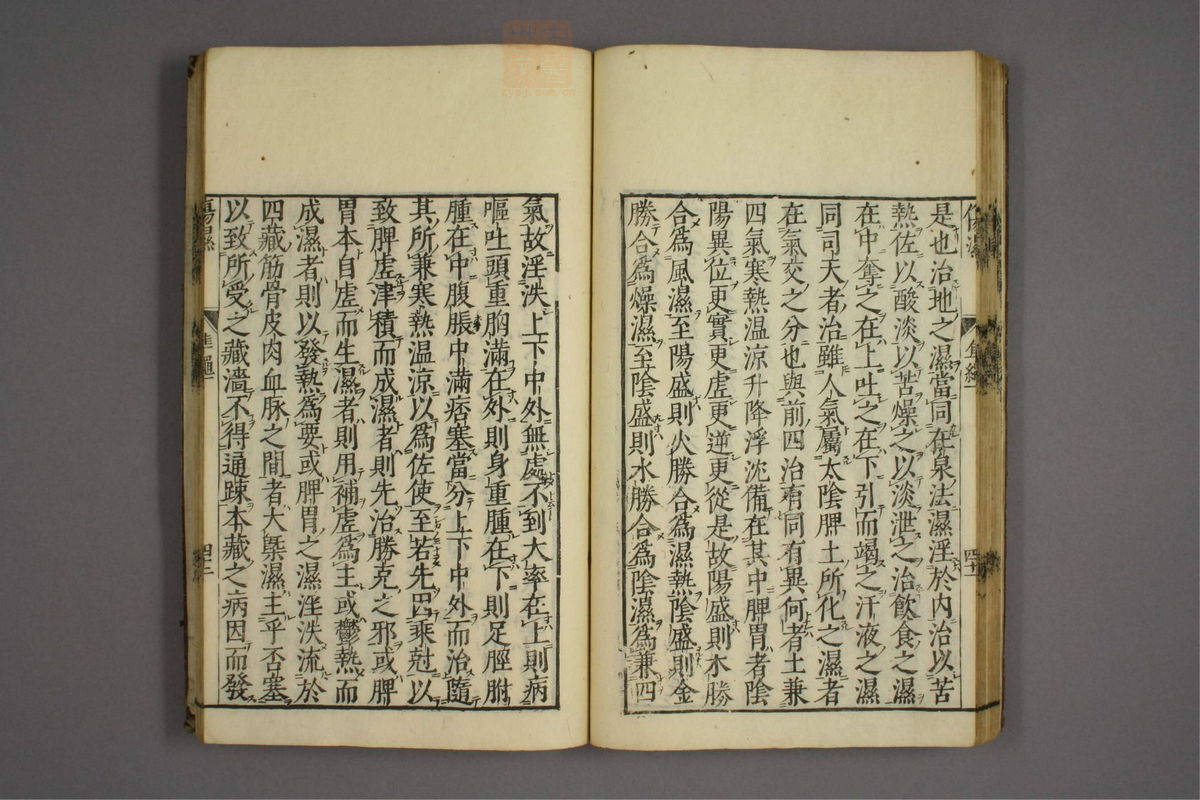 是也治地之濕當同在泉法濕淫於內治以苦
熱佐以酸淡以苦燥之以淡泄之治飲食之濕
在中奪之在上吐之在下引而竭之汗液之濕
同司天者治雖人氣屬太陰脾土所化之濕者
在氣交之分也與前四治有同有異何者土兼
四氣寒熱溫涼升降浮沈備在其中脾胃者陰
陽異位更實更虛更逆更從是故陽盛則木勝
合爲風濕至陽盛則火勝合爲濕熱陰盛則金
勝合爲燥濕至陰盛則水勝合爲陰濕爲兼四
氣故淫泆上下中外無處不到大率在上則病
嘔吐頭重胸滿在外則身重腫在下則足脛胕
腫在中腹脹中滿痞塞當分上下中外而治隨
其所兼寒熱溫涼以爲佐使至若先因乘尅以
致脾虛津積而成濕者則先治勝克之邪或脾
胃本自虛而生濕者則用補虛爲主或鬱熱而
成濕者則以發熱爲要或脾胃之濕淫泆流於
四藏筋骨皮肉血脉之間者大槩濕主乎否塞
以致所受之藏濇不得通踈本藏之病因而發
傷濕